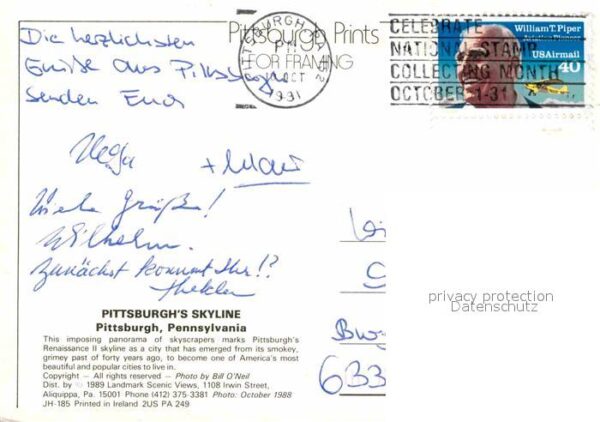 Pittsburgh Prints
FOR FRAMING
PITTSBURGH PA 152
PM
OCT
1991
CELEBRATE
NATIONAL STAMP
COLLECTING MONTH
OCTOBER 1-31
William T. Piper
Aviation Pioneer
USAirmail
40
Die herzlichsten
Grüße aus Pittsburgh
senden Euch
Helga +
Viele Grüße!
Wilhelm.
Zunächst kommt Ihr!?
privacy protection
Datenschutz
633
PITTSBURGH'S SKYLINE
Pittsburgh, Pennsylvania
This imposing panorama of skyscrapers marks Pittsburgh's
Renaissance II skyline as a city that has emerged from its smokey,
grimey past of forty years ago, to become one of America's most
beautiful and popular cities to live in.
Copyright – All rights reserved – Photo by Bill O'Neil
Dist. by © 1989 Landmark Scenic Views, 1108 Irwin Street,
Aliquippa, Pa. 15001 Phone (412) 375-3381 Photo: October 1988
JH-185 Printed in Ireland 2US PA 249